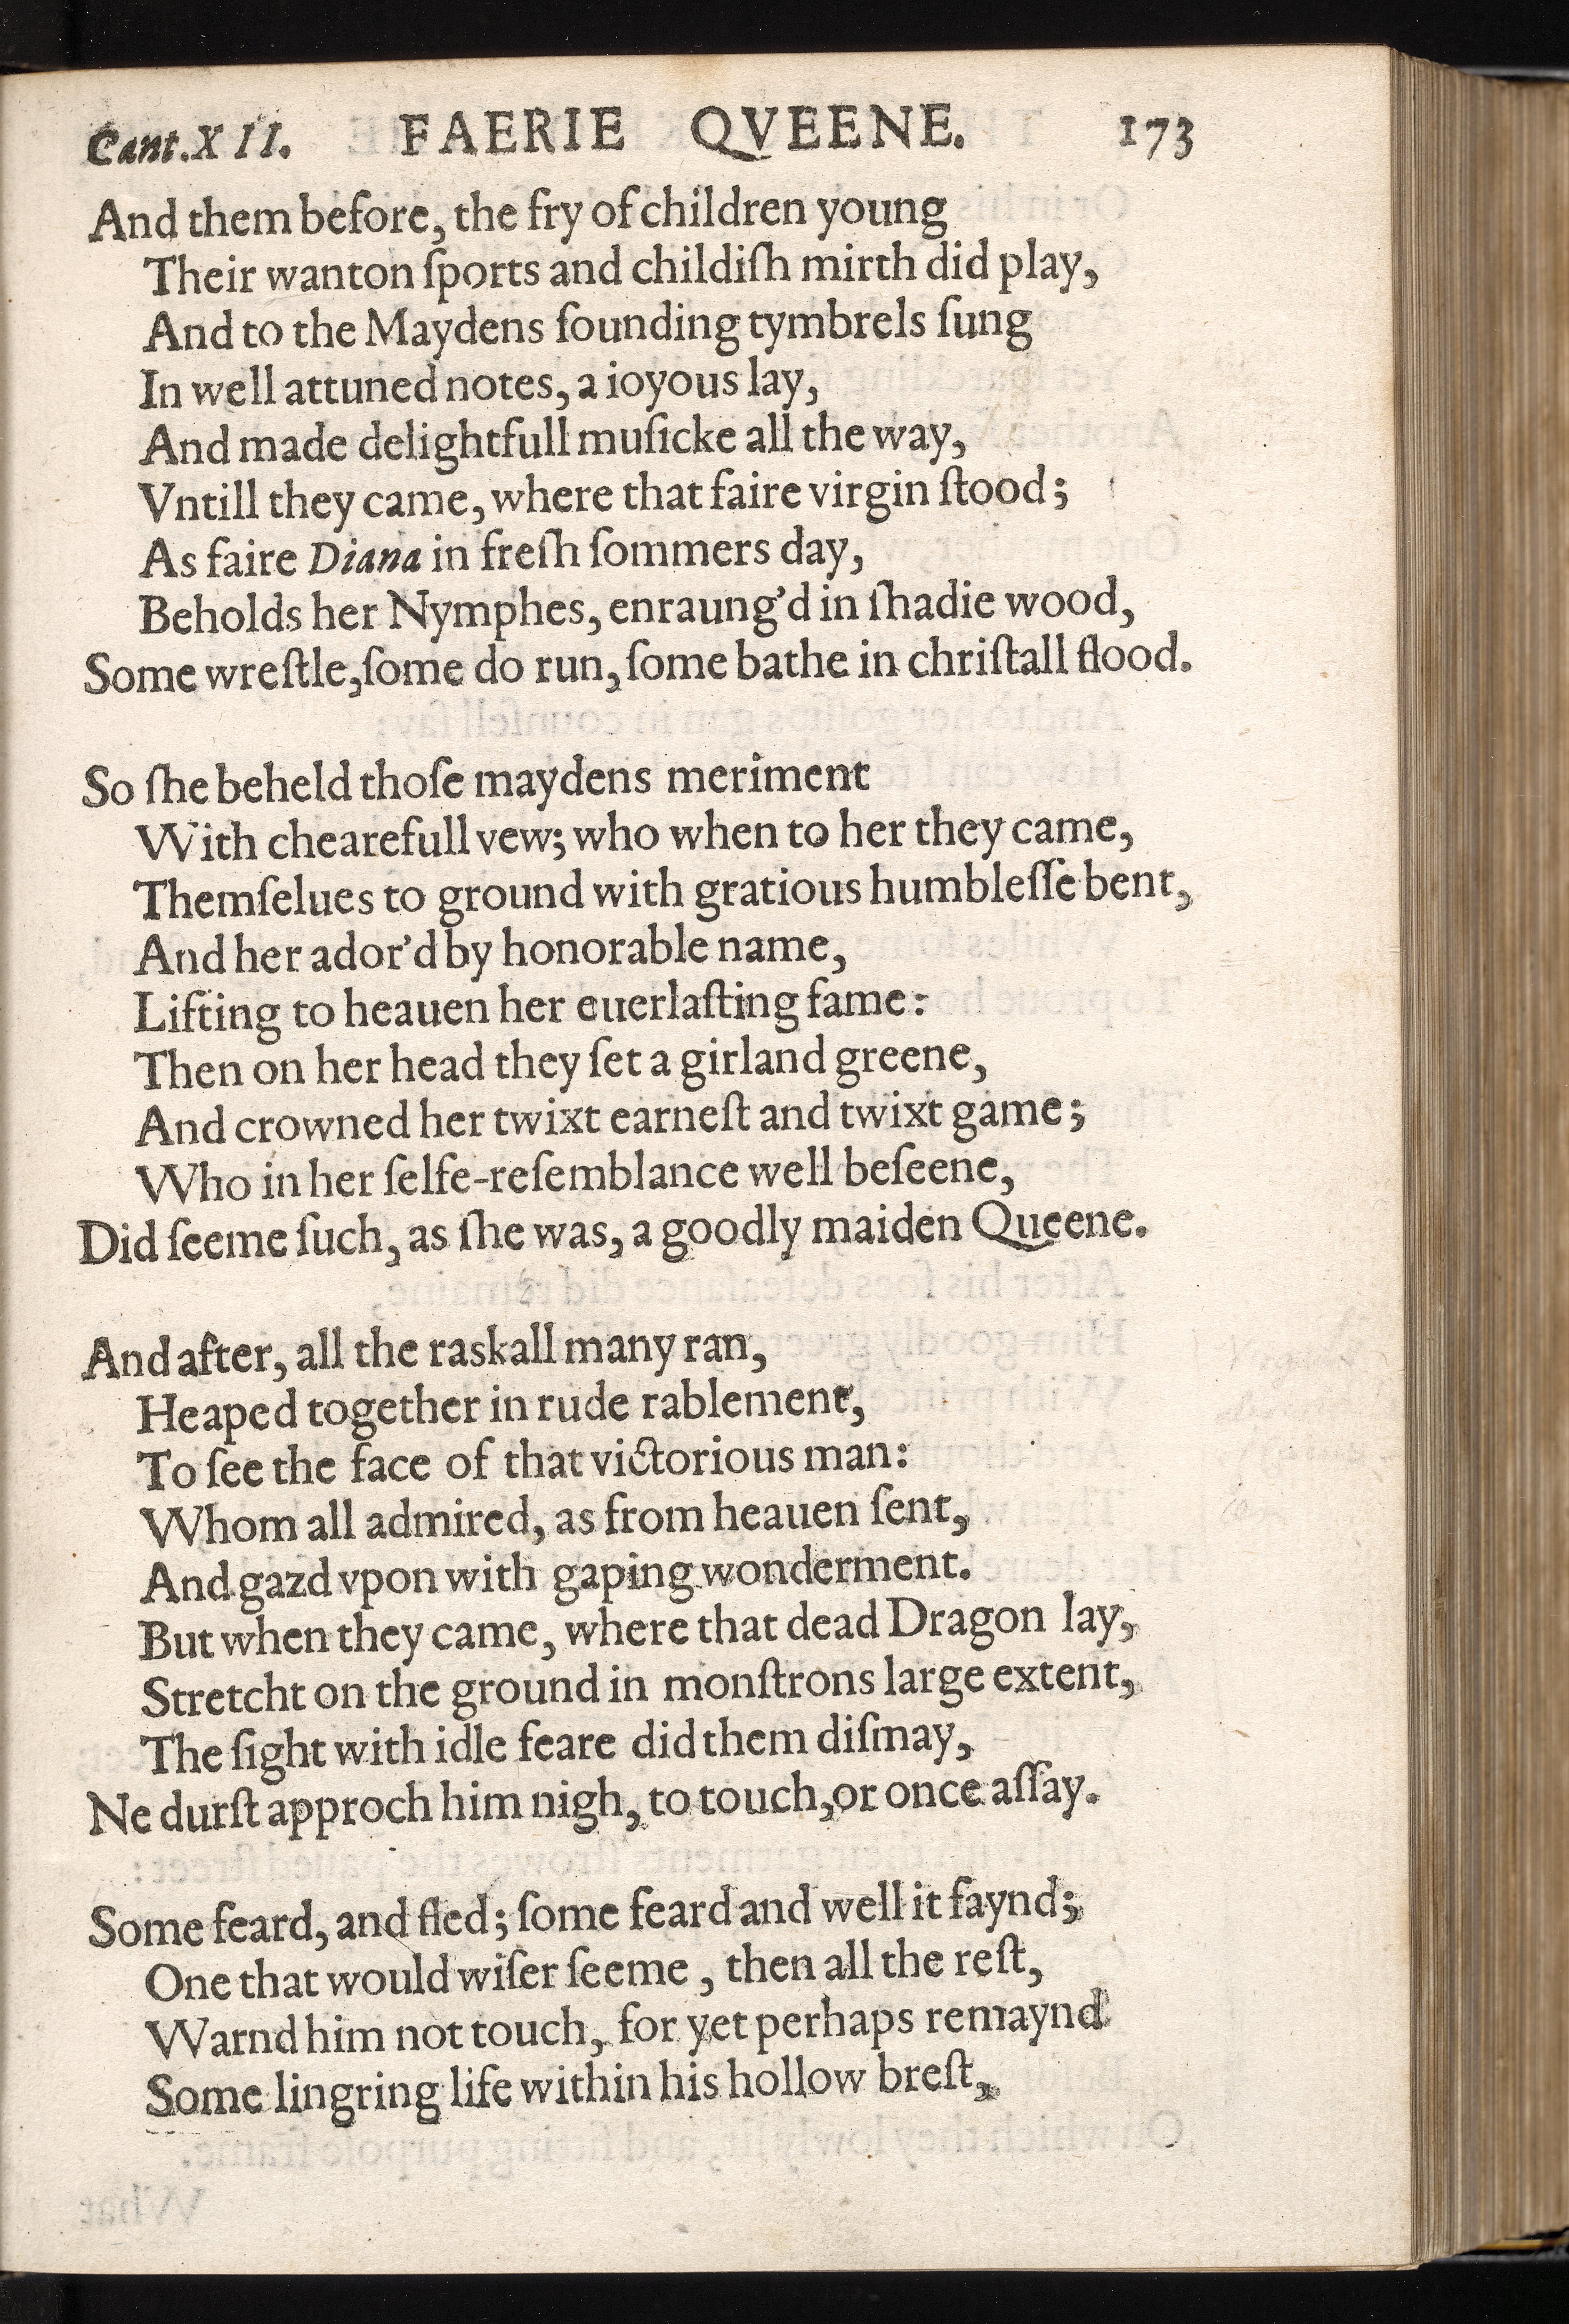 Cant.XII. FAERIE QVEENE. 173
And them before, the fry of children young
Their wanton ſports and childiſh mirth did play,
And to the Maydens ſounding tymbrels ſung
In well attuned notes, a ioyous lay,
And made delightfull muſicke all the way,
Vntill they came, where that faire virgin ſtood;
As faire Diana in freſh ſommers day,
Beholds her Nymphes, enraung'd in ſhadie wood,
Some wreſtle, ſome do run, ſome bathe in chriſtall flood.
So ſhe beheld thoſe maydens meriment
With chearefull vew; who when to her they came,
Themſelues to ground with gratious humbleſſe bent,
And her ador'd by honorable name,
Lifting to heauen her euerlaſting fame:
Then on her head they ſet a girland greene,
And crowned her twixt earneſt and twixt game;
Who in her ſelfe-reſemblance well beſeene,
Did ſeeme ſuch, as ſhe was, a goodly maiden Queene.
And after, all the raskall many ran,
Heaped together in rude rablement,
To ſee the face of that victorious man:
Whom all admired, as from heauen ſent,
And gazd vpon with gaping wonderment.
But when they came, where that dead Dragon lay,
Stretcht on the ground in monſtrons large extent,
The ſight with idle feare did them diſmay,
Ne durſt approch him nigh, to touch, or once aſſay.
Some feard, and fled; ſome feard and well it faynd;
One that would wiſer ſeeme, then all the reſt,
Warnd him not touch, for yet perhaps remaynd
Some lingring life within his hollow breſt,